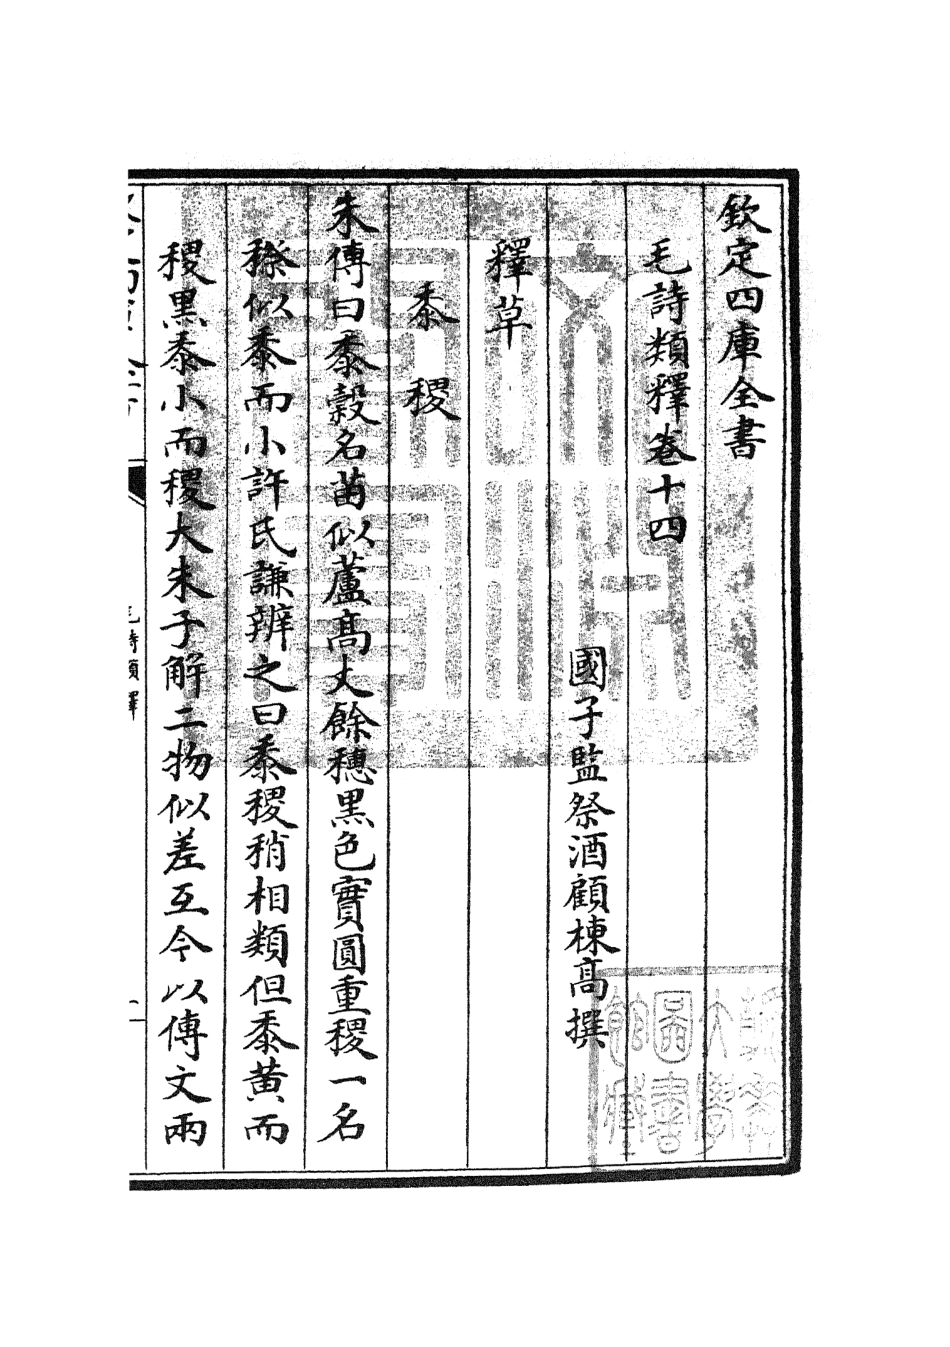 欽定四庫全書
毛詩類釋卷十四
國子監祭酒顧棟高撰
釋草
黍稷
朱傳曰黍穀名苗似蘆高丈餘穗黑色實圓重稷一名
穄似黍而小許氏謙辨之曰黍稷稍相類但黍黄而
稷黑黍小而稷大朱子解二物似差互今以傳文兩
毛詩類釋